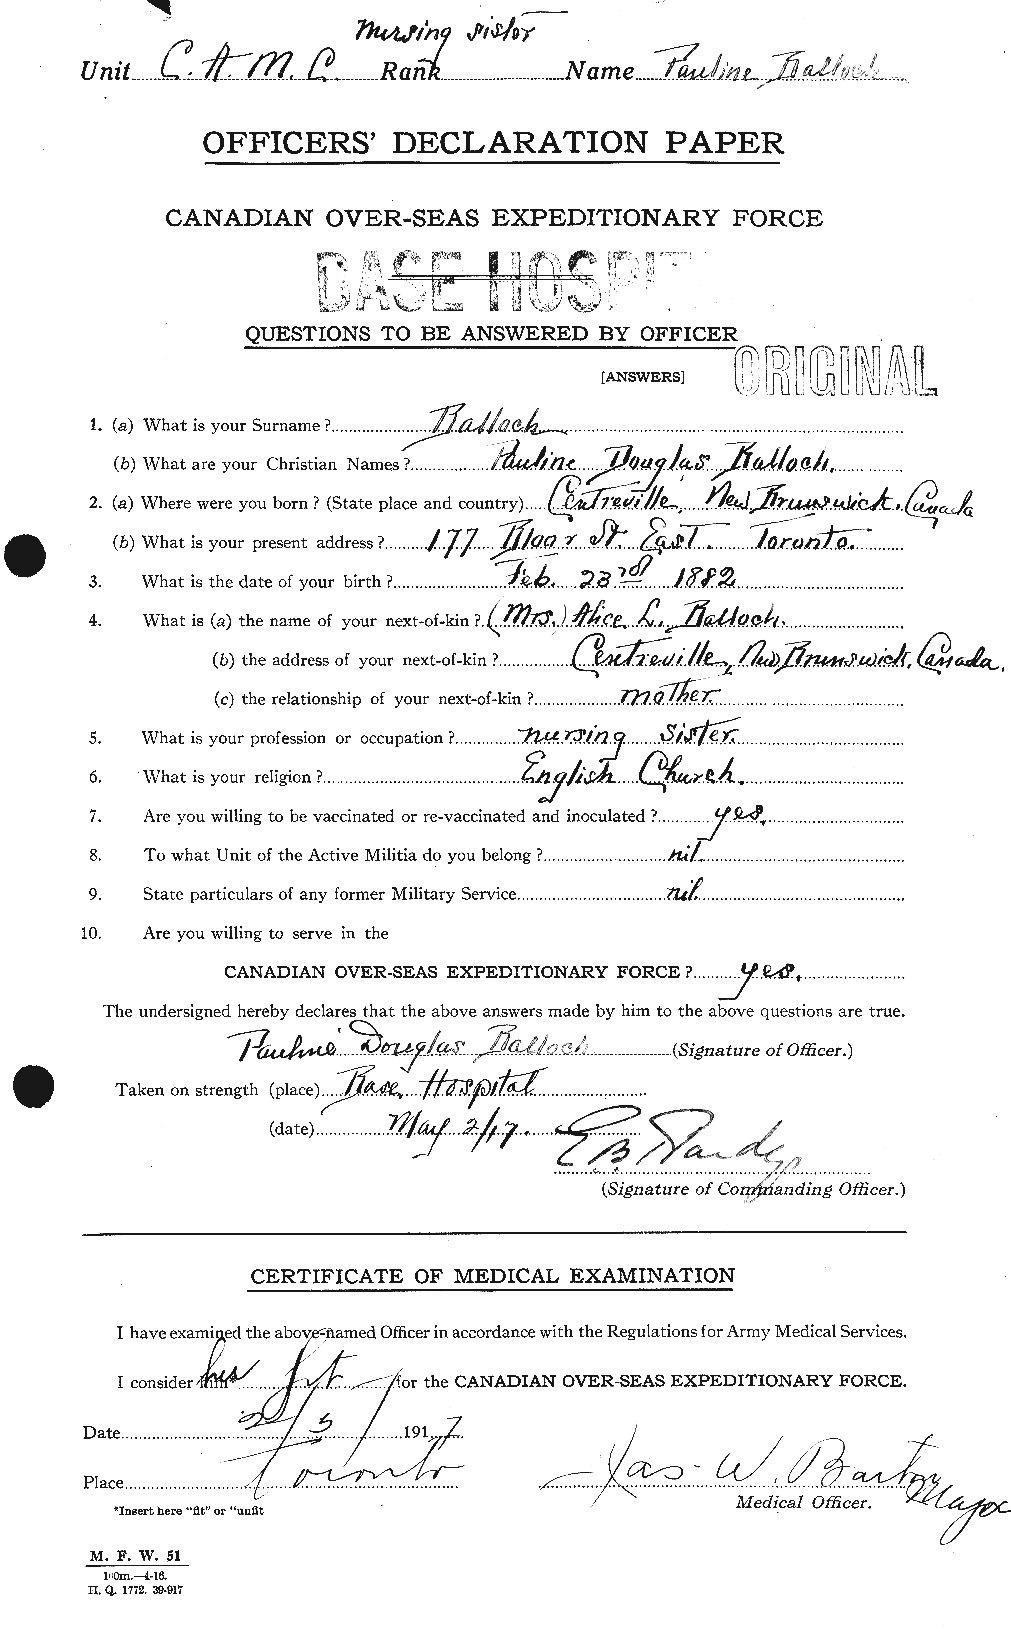 Nursing Sister
Unit C. A. M. C. Rank Name Pauline Balloch
OFFICERS' DECLARATION PAPER
CANADIAN OVER-SEAS EXPEDITIONARY FORCE
BASE HOSPIT
QUESTIONS TO BE ANSWERED BY OFFICER
ORIGINAL
[ANSWERS]
1. (a) What is your Surname ? Balloch
(b) What are your Christian Names ? Pauline Douglas Balloch.
2. (a) Where were you born ? (State place and country) Centreville, New Brunswick, Canada
(b) What is your present address ? 177 Bloor St. East. Toronto.
3. What is the date of your birth ? Feb. 23rd 1882
4. What is (a) the name of your next-of-kin ? (Mrs.) Alice L. Balloch.
(b) the address of your next-of-kin ? Centreville, New Brunswick, Canada.
(c) the relationship of your next-of-kin ? mother.
5. What is your profession or occupation ? nursing Sister.
6. What is your religion ? English Church.
7. Are you willing to be vaccinated or re-vaccinated and inoculated ? yes.
8. To what Unit of the Active Militia do you belong ? nil
9. State particulars of any former Military Service nil.
10. Are you willing to serve in the
CANADIAN OVER-SEAS EXPEDITIONARY FORCE ? yes.
The undersigned hereby declares that the above answers made by him to the above questions are true.
Pauline Douglas Balloch (Signature of Officer.)
Taken on strength (place) Base Hospital
(date) May 2/17.
E B Hardy
(Signature of Commanding Officer.)
CERTIFICATE OF MEDICAL EXAMINATION
I have examined the above-named Officer in accordance with the Regulations for Army Medical Services.
I consider him* fit for the CANADIAN OVER-SEAS EXPEDITIONARY FORCE.
Date 2/5 1917
Place Toronto
Jas. W. Barton Major
Medical Officer.
*Insert here "fit" or "unfit
M. F. W. 51
100m.—4-16.
H. Q. 1772. 39-917